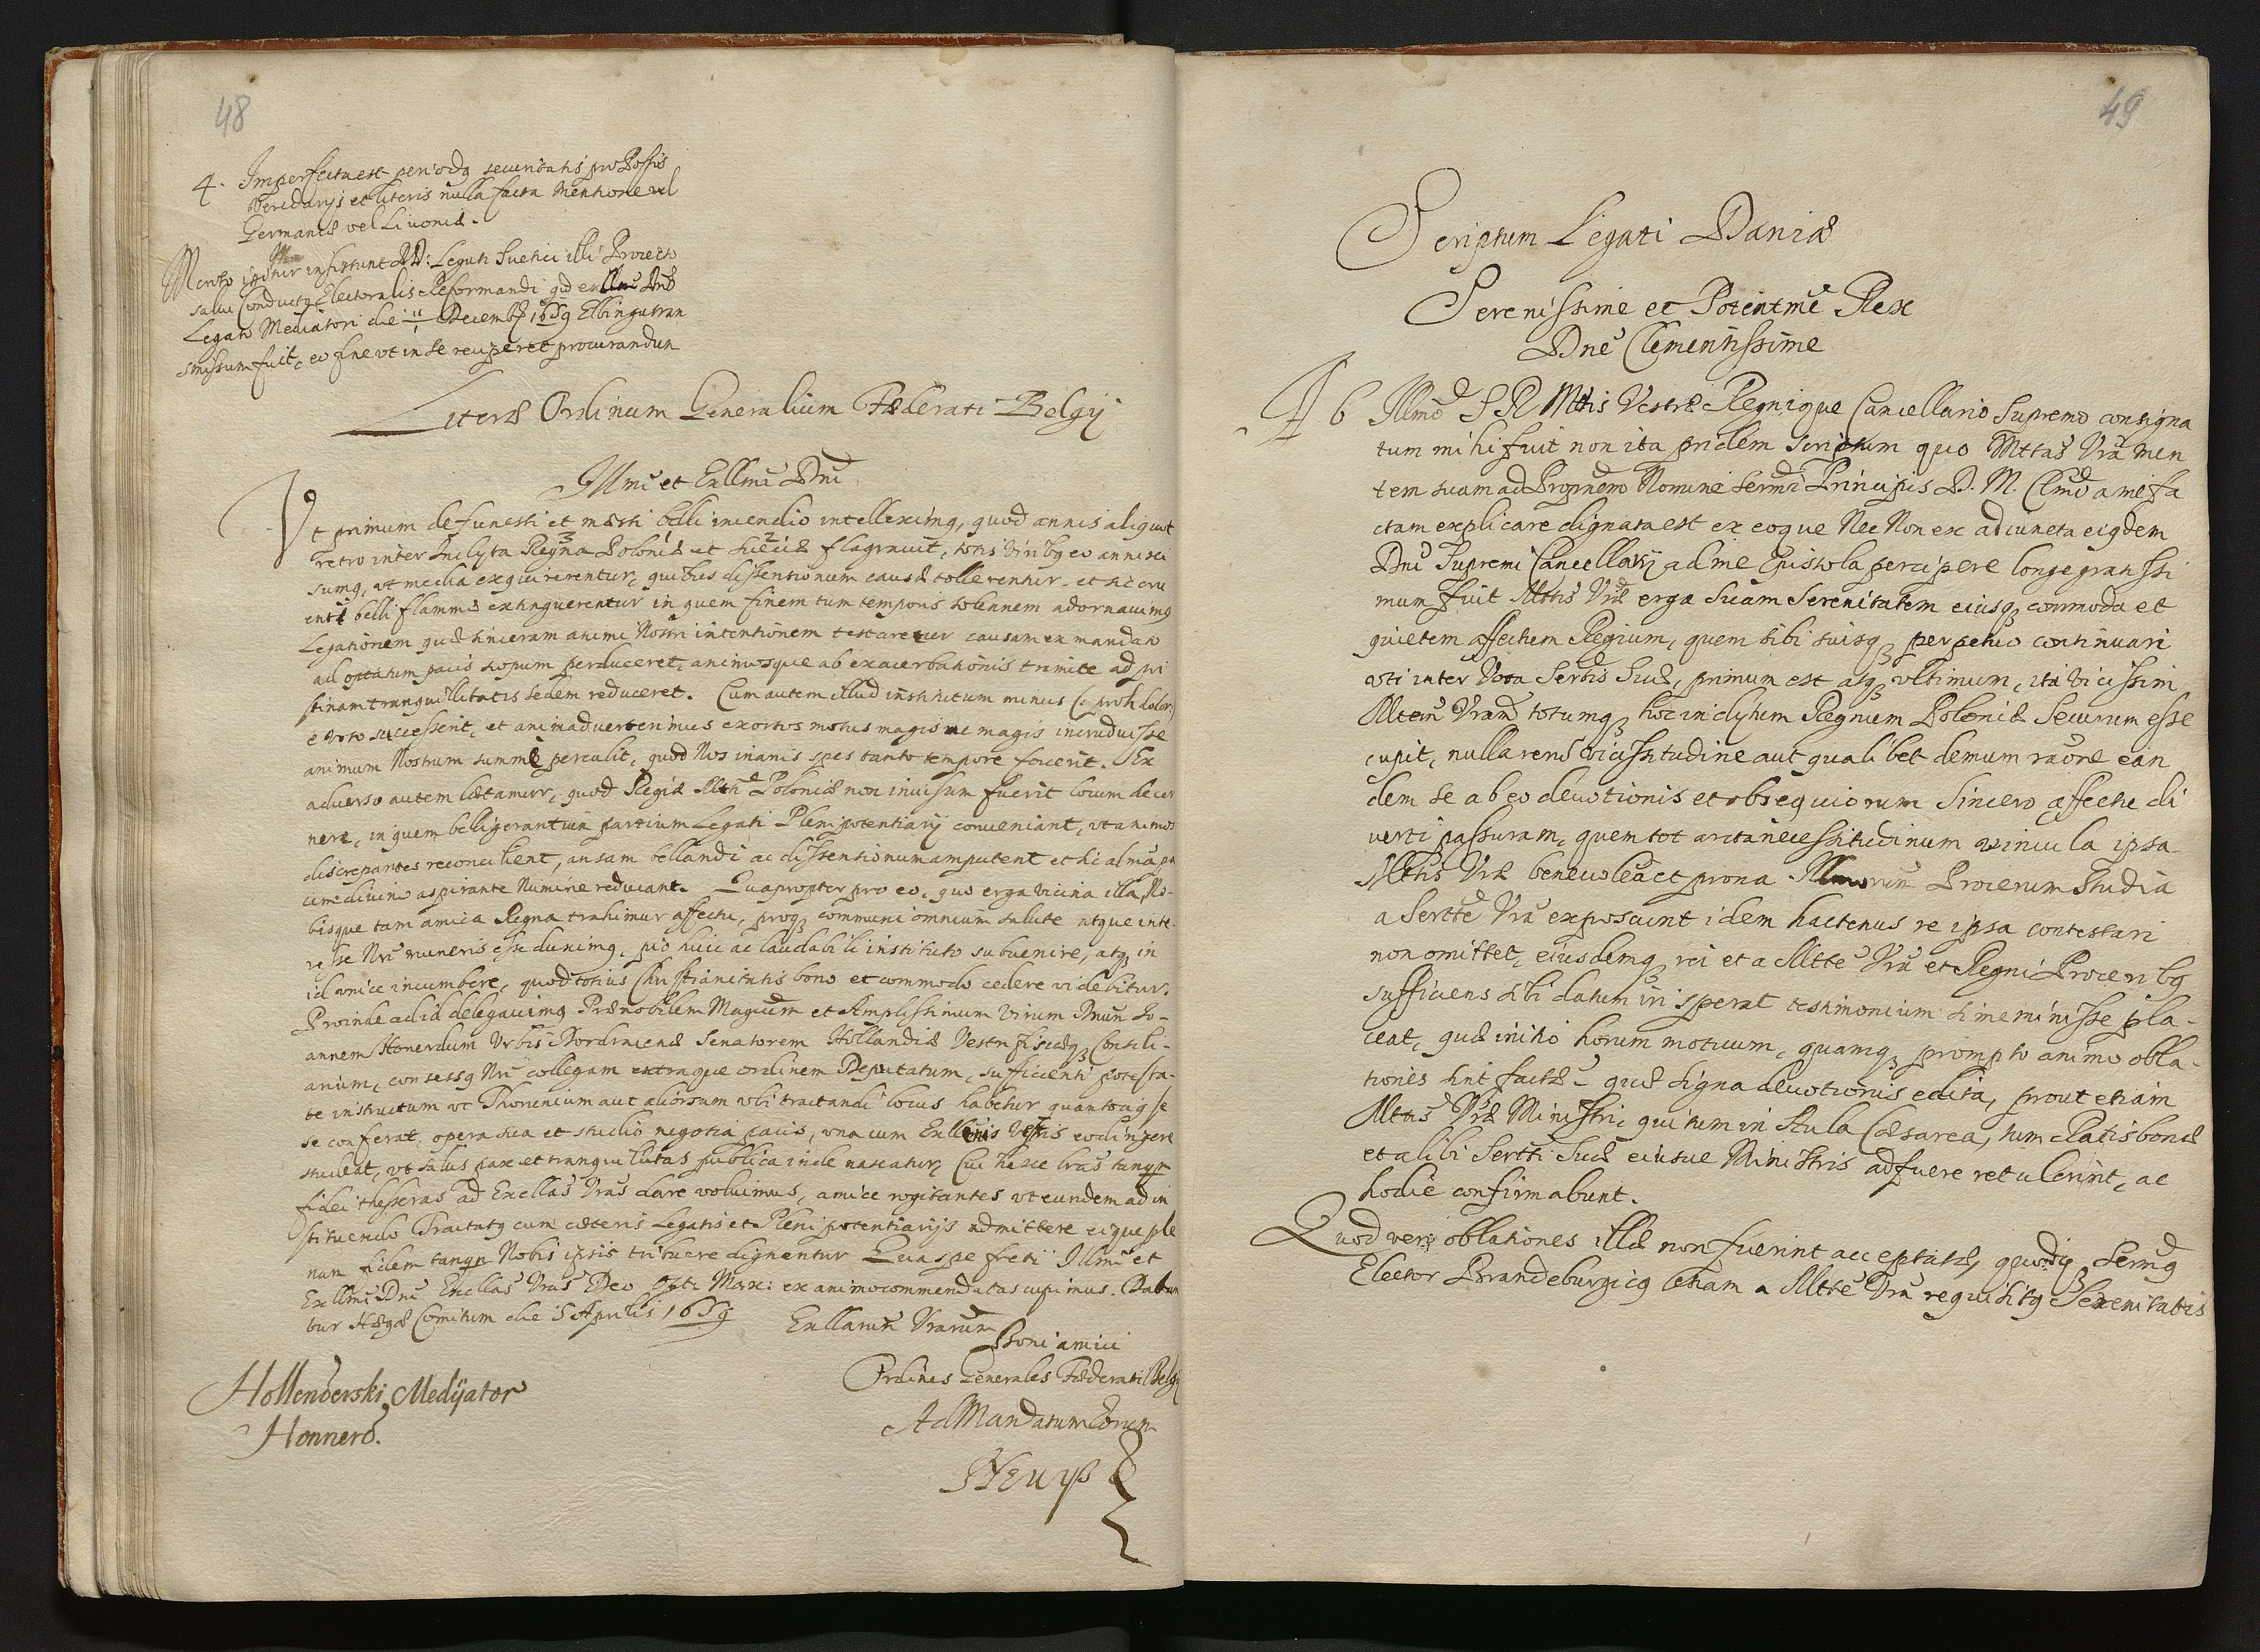 48
4. Imperfecta est periodq securitatis pro Postis
Veredarijs et literis nulla facta Mentione vel
Germaniæ vel Livoniæ.
Merito igitur insistunt DD: Legati Suetici illi Proiecto
salui Conductq Electoralis Reformandi qd
Legato Mediatori die 11/1 Decembr 1659 Elbinga tran
smissum fuit, eo fine vt in se reciperet procurandun
Literæ Ordinum Generalium Fæderati Belgij
Illmi et Exllmi Dni
Vt primum de funesti et mæsti belli incendio intelleximq, quod annis aliquot
retro inter Inclyta Regna Poloniæ et Sueciæ flagrauit, totis Viribq eo annixi
sumq, vt media exquirerentur, quibus dissentionum causæ tollerentur et hæ cru
entæ belli flammæ extinguerentur in quem finem tum temporis solennem adornauimq
Legationem, quæ sinceram animi Nostri intentionem testaretur causam ex mandato
ad optatum pacis scopum perduceret, animosque ab exacerbationis tramite ad pri
stinam tranquillitatis sedem reduceret. Cum autem illud institutum minus (: proh dolor:)
e voto successerit, et animaduerterimus exortos motus magis ac magis incruduisse
animum Nostrum summe perculit, quod Nos inanis spes tanto tempore fouerit. Ex
aduerso autem lætamur, quod Regiæ Mtti Poloniæ non inuisum fuerit locum decer
nere, in quem belligerantium partium Legati Plenipotentiarij conueniant, vt animos
discrepantes reconcilient, ansam bellandi ac dissentionum amputent et hi almã pa
cem diuino aspirante Numine reducant. Quapropter pro eo, quo erga vicina illa No-
bisque tam amica Regna trahimur affectu, proq communi omnium salute atque inte-
resse Nri muneris esse duximq, pio huic ac laudabili instituto subuenire, atq in
id vnice incumbere, quod totius Christianitatis bono et commodo cedere videbitur.
Proinde ad id delegauimq Prænobilem Magcum et Amplissimum Virum Dnum Jo-
annem Honerdum Vrbis Dordracenæ Senatorem Hollandiæ Vestrifisiæq Consili-
arium, consessq Nri collegam extraque ordinem Deputatum, sufficienti potesta-
te instructum vt Thorunium aut aliorsum vbi tractandi locus habetur quantocig se
se conferat, opera sua et studio negotia pacis, vna cum Exllentis Vestris eo dirigere
studeat, vt salus pax et tranquillitas publica inde nascatur, Cui hasce lras tanqr
fidei thesseras ad Excllas Vras dare voluimus, amice rogitantes vt eundem ad in
stituendo Tractatq cum cæteris Legatis et Plenipotentiarijs admittere eique ple
nam fidem tanqn Nobis ipsis tribuere dignentur Qua spe freti Illmi et
Exllmi Dni Excllas Vras Deo Opti Max: ex animo commendatas cupimus. Daban
tur Hagæ Comitum die 5 Aprilis 1659 Exllarum Vrarum
Boni amici
Ordines Generales Fæderati Belgij
Ad Mandatum Eorum
Hollenderski Medyator
Honnerd.
49
Scriptum Legati Daniæ
Serenissime et Potentme Rex
Dne Clementissime
Ab Illmo S R Mttis Vestræ Regnique Cancellario Supremo consigna
tum mihi fuit non ita pridem scriptum quo Mttas Vra men
tem suam ad Propnem Nomine Sermi Principis D. M. Clmo a me fa
ctam explicare dignata est ex eoque Nec Non ex adiuncta eiqdem
Dni Supremi Cancellarij ad me Epistola percipere longe gratissi
mum fuit Mttis Vræ erga Suam Serenitatem eiusq commoda et
quietem affectum Regium, quem sibi suisq perpetuo continuari
vti inter Vota Sertis Suæ, primum est atq vltimum, ita vicissim
Mttem Vram totumq hoc inclytum Regnum Poloniæ Securum esse
cupit, nulla rerum vicissitudine aut qualibet demum raone ean
dem se ab eo deuotionis et obsequiorum Sincero affectu di
uerti passuram, quem tot arcta necessitudinum vincula ipsa
Mttis Vræ beneuolea et prona Illmorum Procerum Studia
a Sertte Vra exposcunt idem hactenus re ipsa contestari
non omittet, eiusdemq rei et a Mtte Vra et Regni Proceribq
sufficiens sibi datum iri sperat testimonium si meminisse pla-
ceat, quæ initio horum motuum, quamq prompto animo obla-
tiones sint factæ quæ signa deuotionis edita, prout etiam
Mttis Vræ Ministri, qui tum in Aula Cæsarea, tum Ratisbonæ
et alibi Sertti Suæ eiusue Ministris adfuere retulerint, ac
hodie confirmabunt.
Quod vero oblationes illæ non fuerint acceptatæ, quodq Sermq
Elector Brandeburgicq etiam a Mtte Vra requisitq Serenitatis